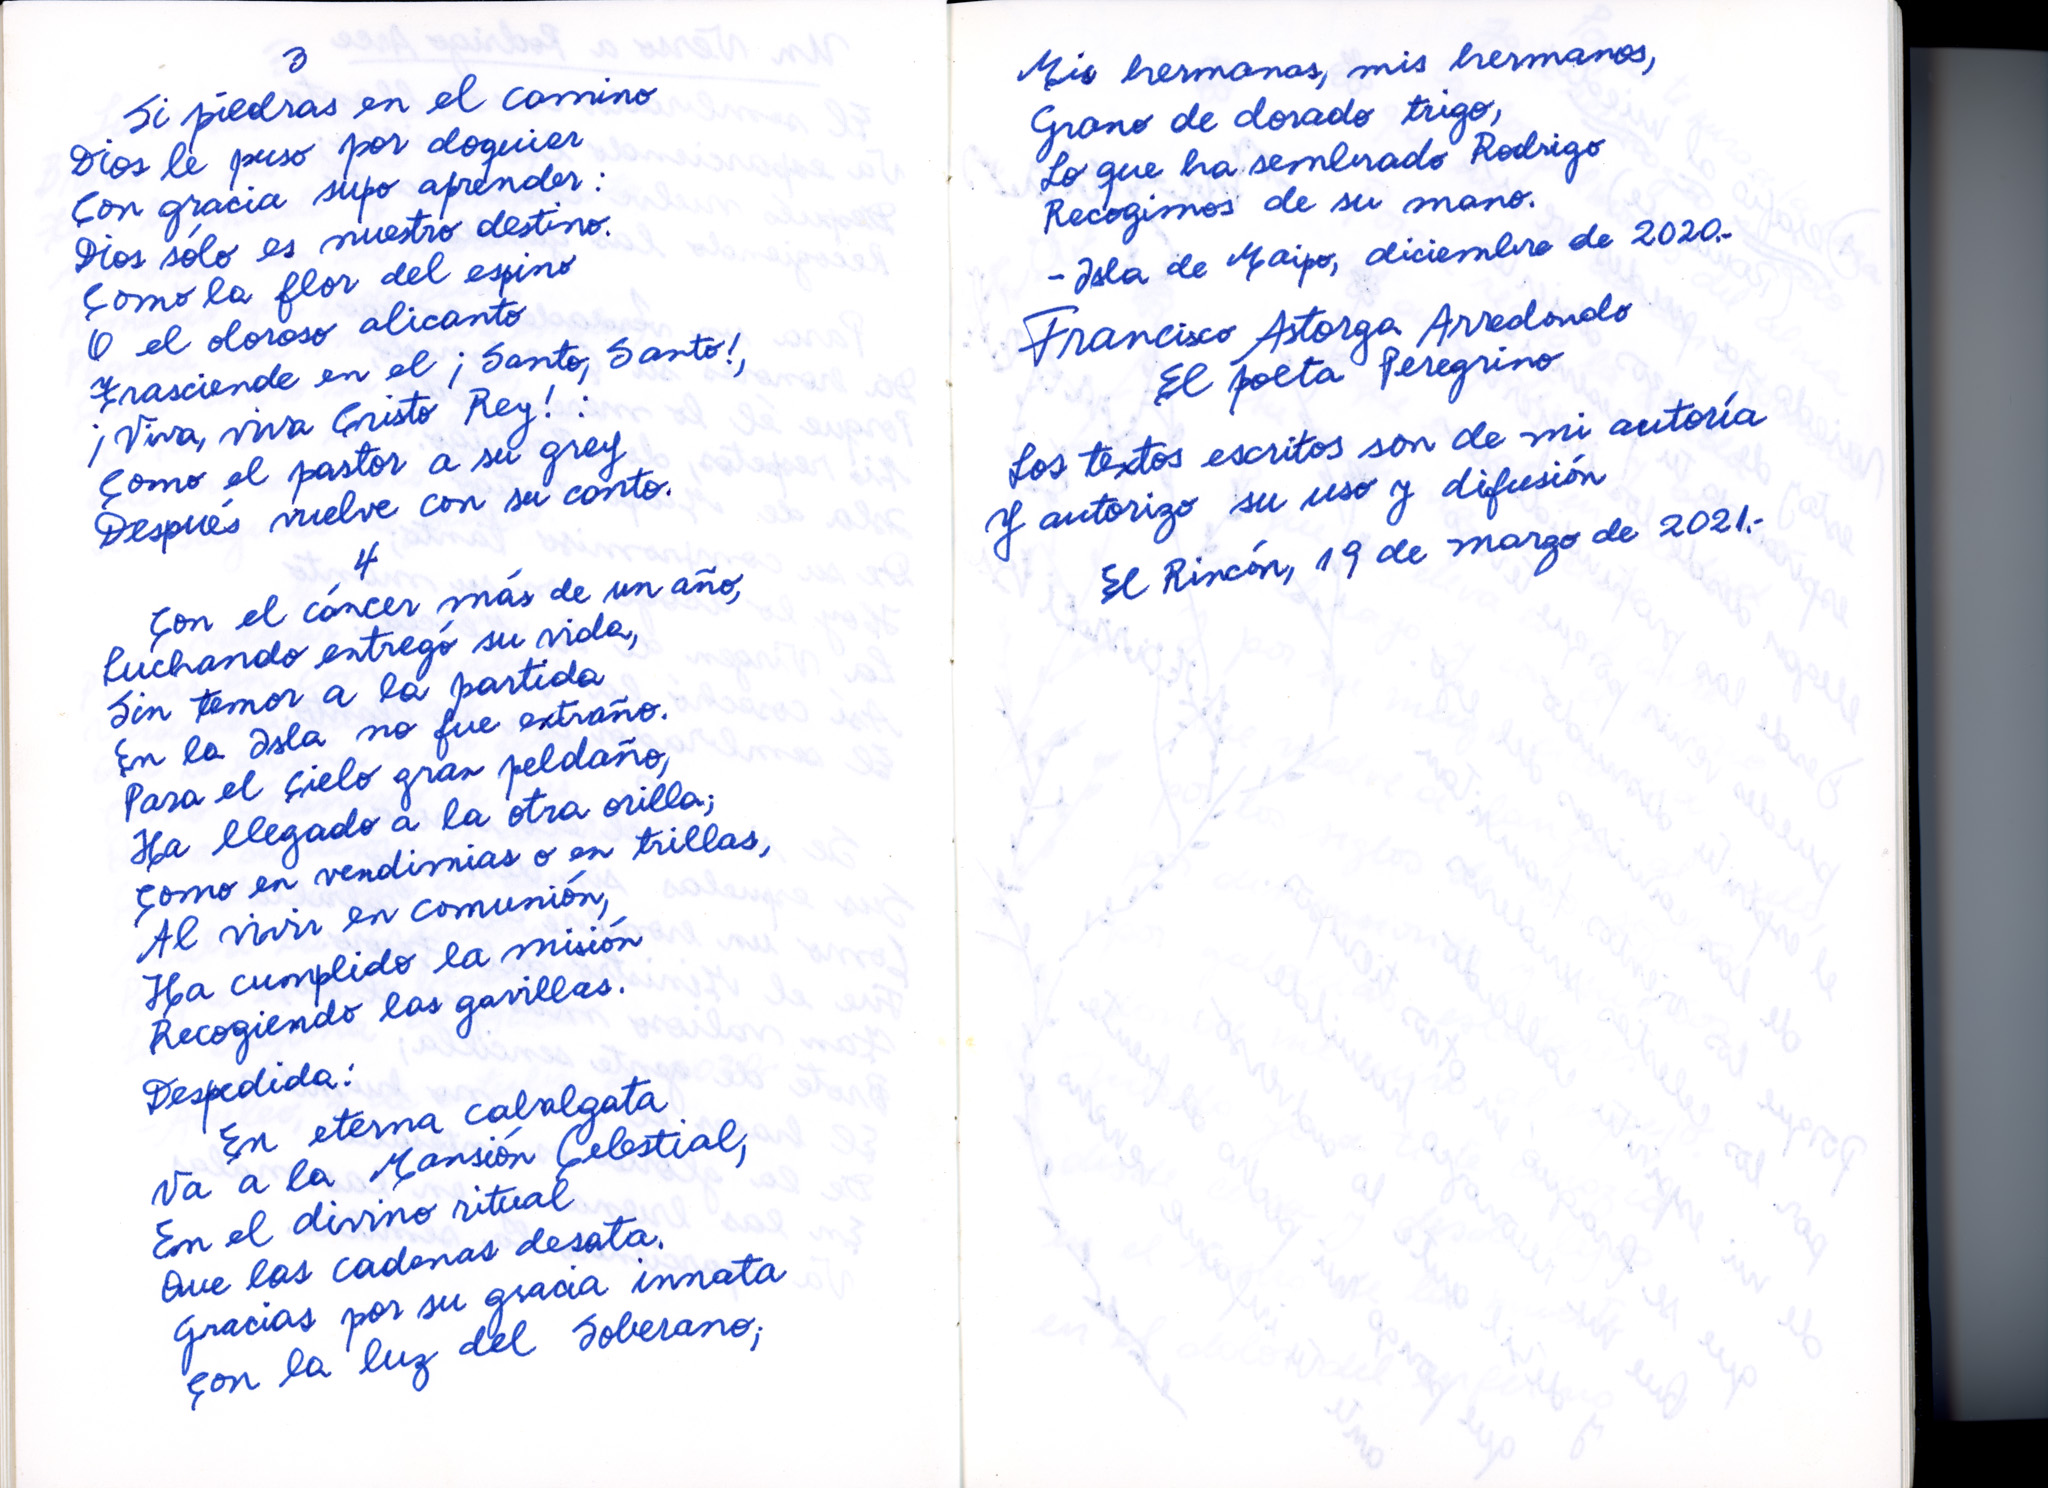 3
Si piedras en el camino
Dios le puso por doquier
Con gracia supo aprender:
Dios sólo es nuestro destino.
Como la flor del espino
O el oloroso alicanto
Trasciende en el ¡Santo, Santo!,
¡Viva, viva Cristo Rey!:
Como el pastor a su grey
Después vuelve con su canto.
4
Con el cáncer más de un año,
Luchando entregó su vida,
Sin temor a la partida
En la Isla no fue extraño.
Para el Cielo gran peldaño,
Ha llegado a la otra orilla;
Como en vendimias o en trillas,
Al vivir en comunión,
Ha cumplido la misión
Recogiendo las gavillas.
Despedida:
En eterna cabalgata
Va a la Mansión Celestial,
En el divino ritual
Que las cadenas desata.
Gracias por su gracia innata
Con la luz del Soberano;
Mis hermanas, mis hermanos,
Grano de dorado trigo,
Lo que ha sembrado Rodrigo
Recogimos de su mano.
-Isla de Maipo, diciembre de 2020.-
Francisco Astorga Arredondo
El poeta Peregrino
Los textos escritos son de mi autoría
Y autorizo su uso y difusión
El Rincón, 19 de marzo de 2021.-